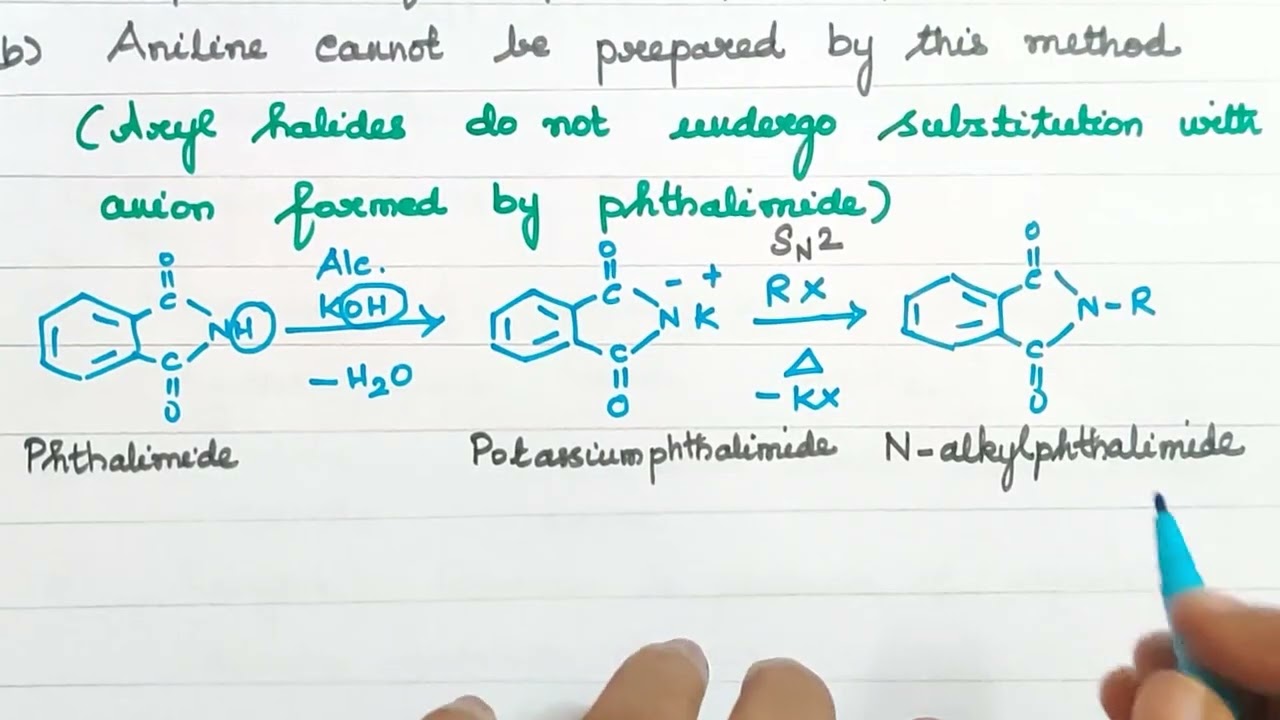 b) Aniline cannot be prepared by this method
(Aryl halides do not undergo substitution with
anion formed by phthalimide)
O
C
NH
C
O
Alc.
KOH
-H2O
O
C
- +
N K
C
O
SN2
RX
Δ
-KX
O
C
N-R
C
O
Phthalimide Potassiumphthalimide N-alkylphthalimide